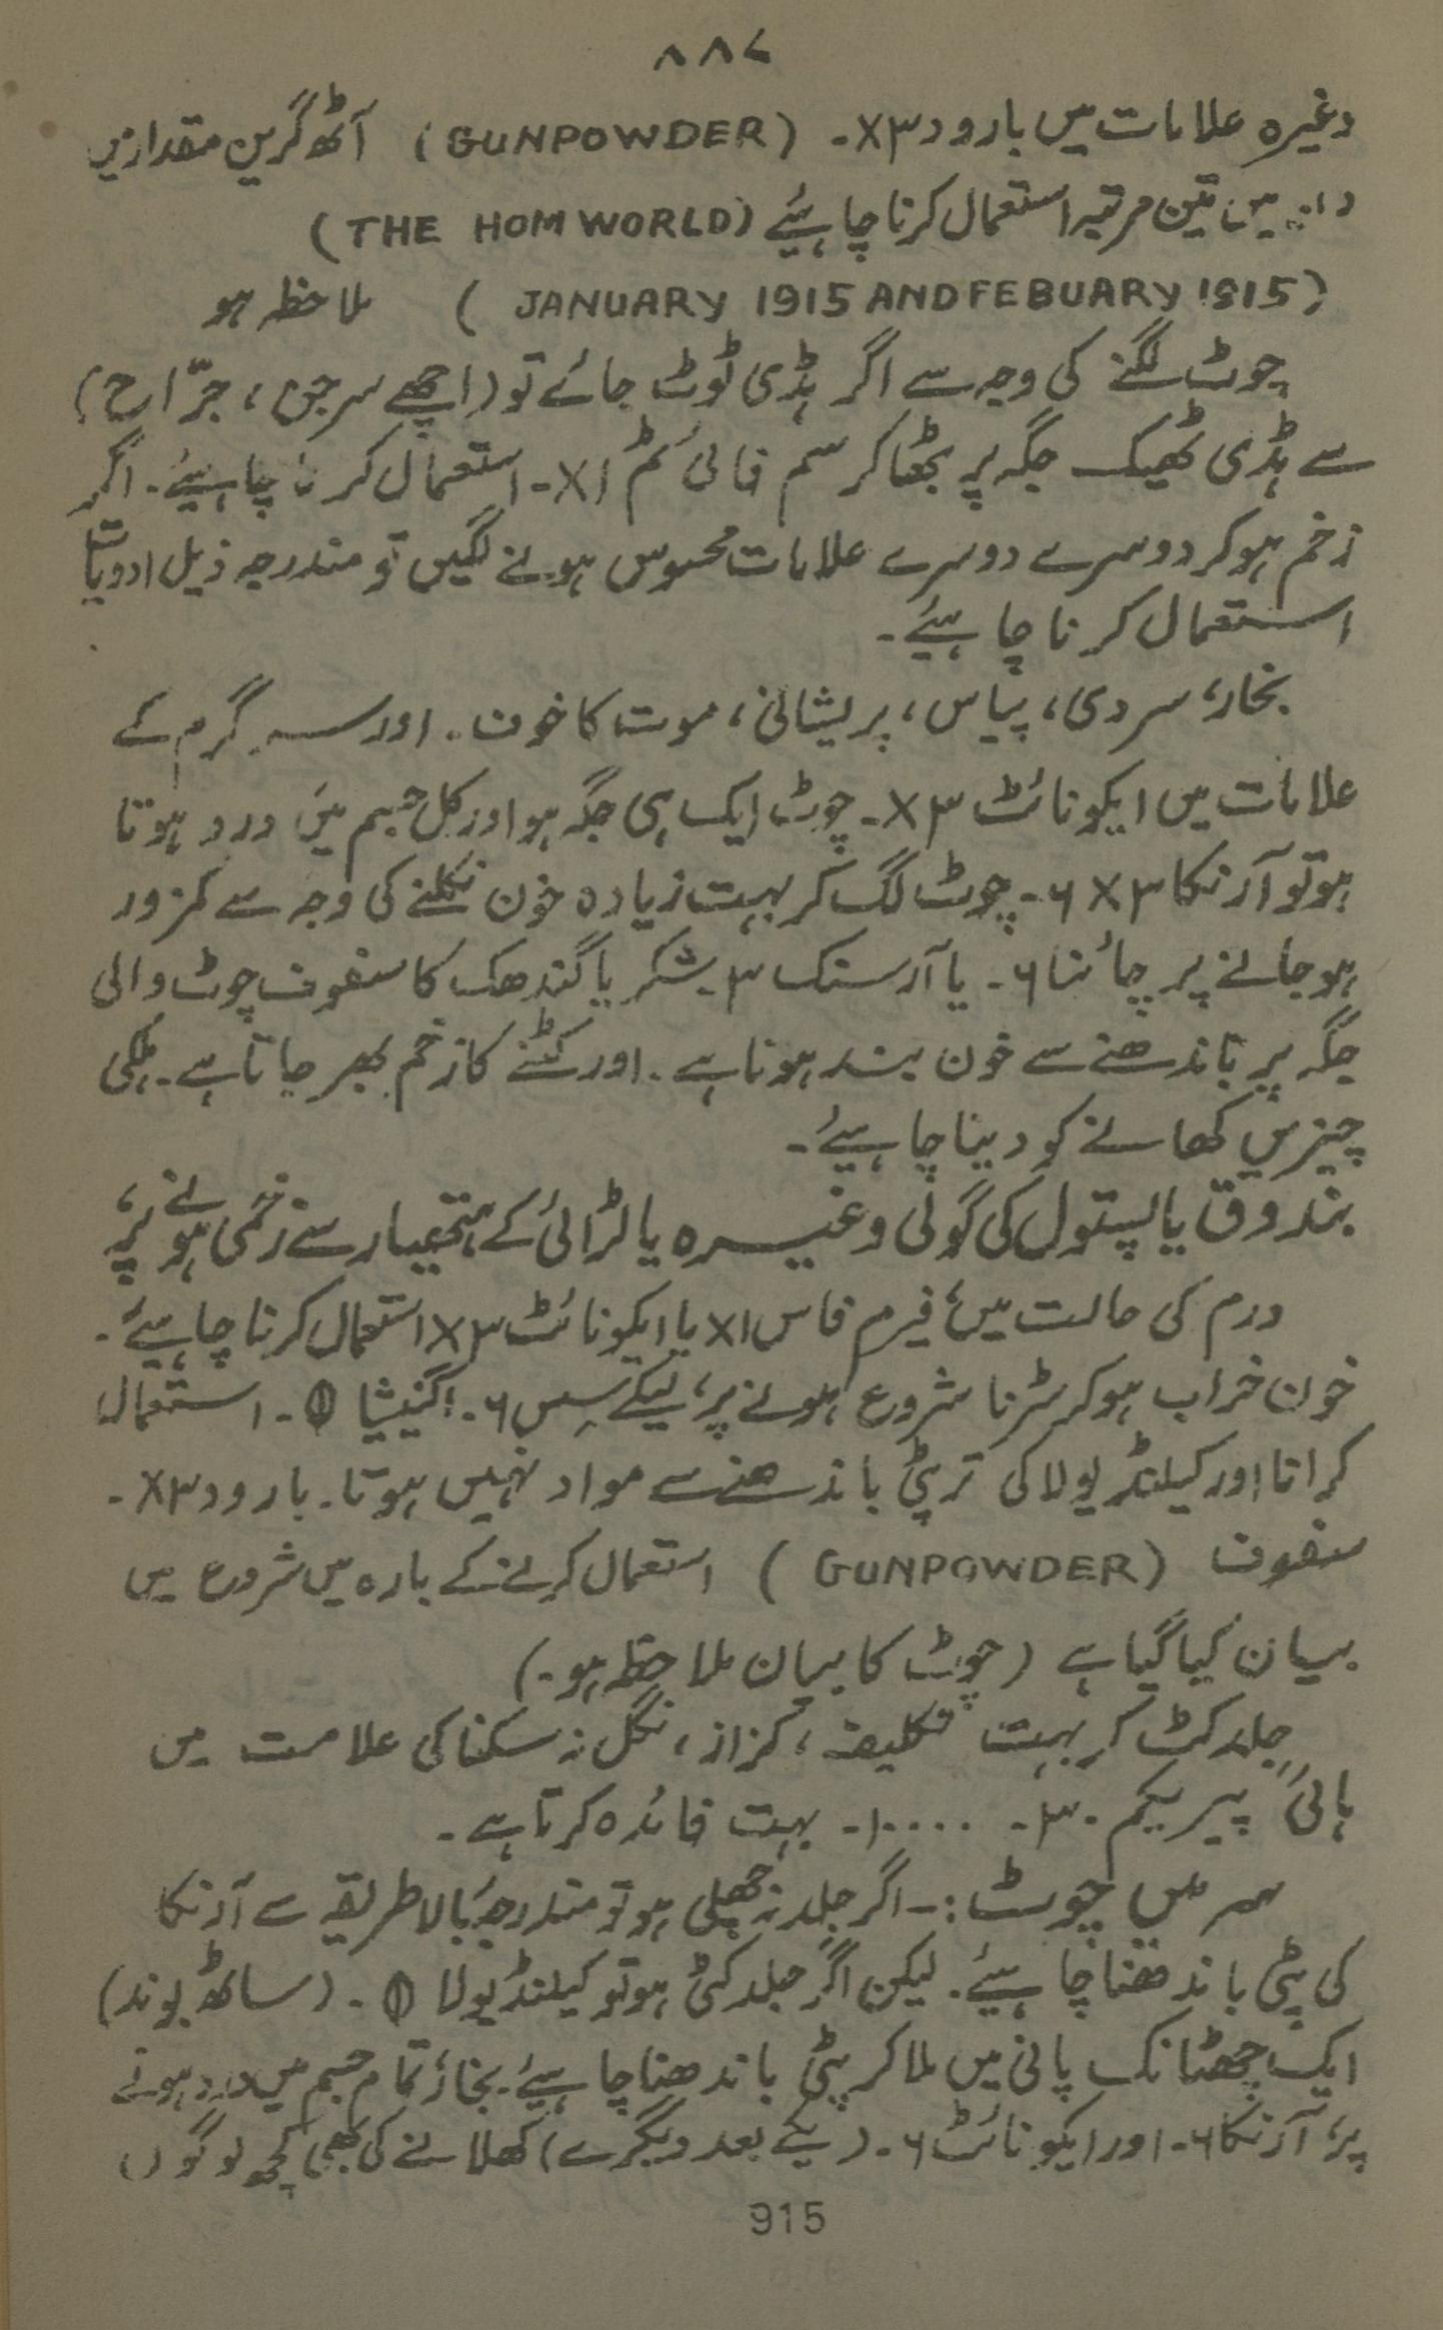 ۸۸۷
وغیرہ علامات میں بارود ۳x۔ (GUNPOWDER) آٹھ گرین مقدار میں
میں تین مرتبہ استعمال کرنا چاہیئے (THE HOM WORLD)
(JANUARY 1915 AND FEBUARY 1915) ملاحظہ ہو
چوٹ لگنے کی وجہ سے اگر ہڈی ٹوٹ جائے تو (اچھے سرجن، جرّاح)
سے ہڈی ٹھیک جگہ پر بٹھا کر سم فائی ٹم ۱x۔ استعمال کرنا چاہیئے۔ اگر
زخم ہو کر دوسرے دوسرے علامات محسوس ہونے لگیں تو مندرجہ ذیل ادویات
استعمال کرنا چاہیئے۔
بخار، سردی، پیاس، پریشانی، موت کا خوف۔ اور سر گرم کے
علامات میں ایکونائٹ ۳x۔ چوٹ ایک ہی جگہ ہو اور کل جسم میں درد ہوتا
ہو تو آرنکا ۳x ۶۔ چوٹ لگ کر بہت زیادہ خون نکلنے کی وجہ سے کمزور
ہو جانے پر چائنا ۶۔ یا آرسنک ۳۔ شکر یا گندھک کا سفوف چوٹ والی
جگہ پر باندھنے سے خون بند ہوتا ہے۔ اور کٹنے کا زخم بھر جاتا ہے۔ ہلکی
چیزیں کھانے کو دینا چاہیئے۔
بندوق یا پستول کی گولی وغیرہ یا لڑائی کے ہتھیار سے زخمی ہونے پر،
ورم کی حالت میں، فیرم فاس ۱x یا ایکونائٹ ۳x استعمال کرنا چاہیئے۔
خون خراب ہو کر سڑنا شروع ہونے پر، لیکے سِس ۶۔ اکنیشا ⦶۔ استعمال
کرانا اور کیلنڈیولا کی تر پٹی باندھنے سے مواد نہیں ہوتا۔ بارود ۳x۔
سفوف (GUNPOWDER) استعمال کرنے کے بارہ میں شروع میں
بیان کیا گیا ہے (چوٹ کا بیان ملاحظہ ہو۔)
جلد کٹ کر بہت تکلیف، کزاز، نگل نہ سکنا کی علامت میں
ہائی پیریکم ۳۰۔ ۱۰۰۰۔ بہت فائدہ کرتا ہے۔
سر میں چوٹ :۔ اگر جلد نہ چھلی ہو تو مندرجہ بالا طریقہ سے آرنکا
کی پٹی باندھنا چاہیئے۔ لیکن اگر جلد کٹی ہو تو کیلنڈیولا ⦶۔ (ساٹھ بوند)
ایک چھٹانک پانی میں ملا کر پٹی باندھنا چاہیئے۔ بخار، تمام جسم میں درد ہونے
پر، آرنکا ۶۔ اور ایکونائٹ ۶۔ (یکے بعد دیگرے) کھلانے کی بھی کچھ لوگوں
915